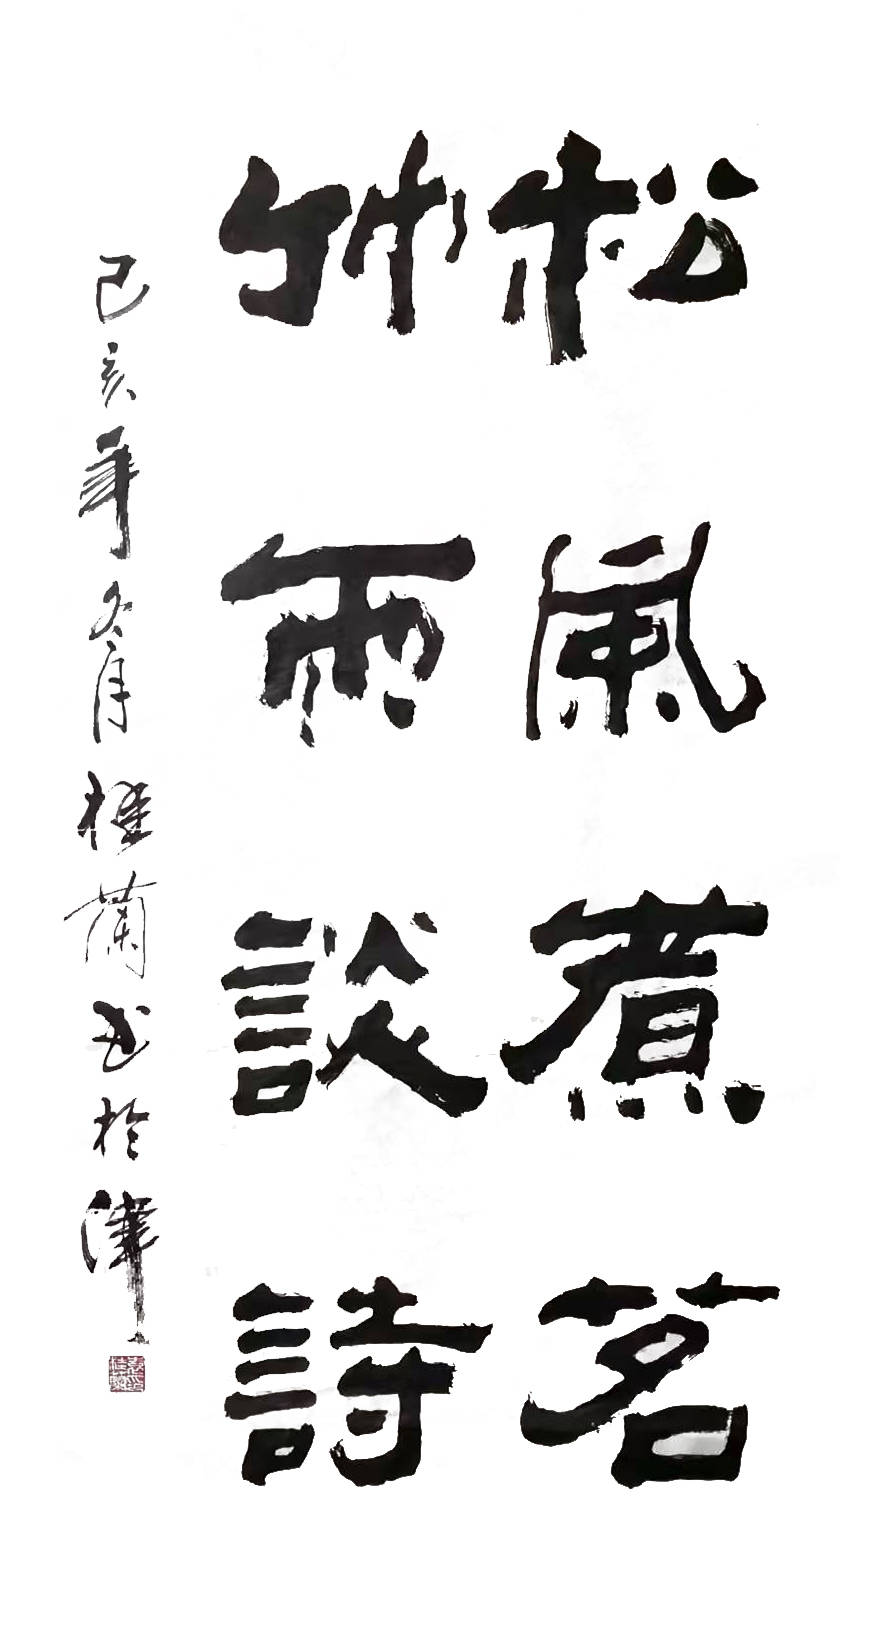 松風煮茗
竹雨談詩
己亥年冬月桂蘭书於津